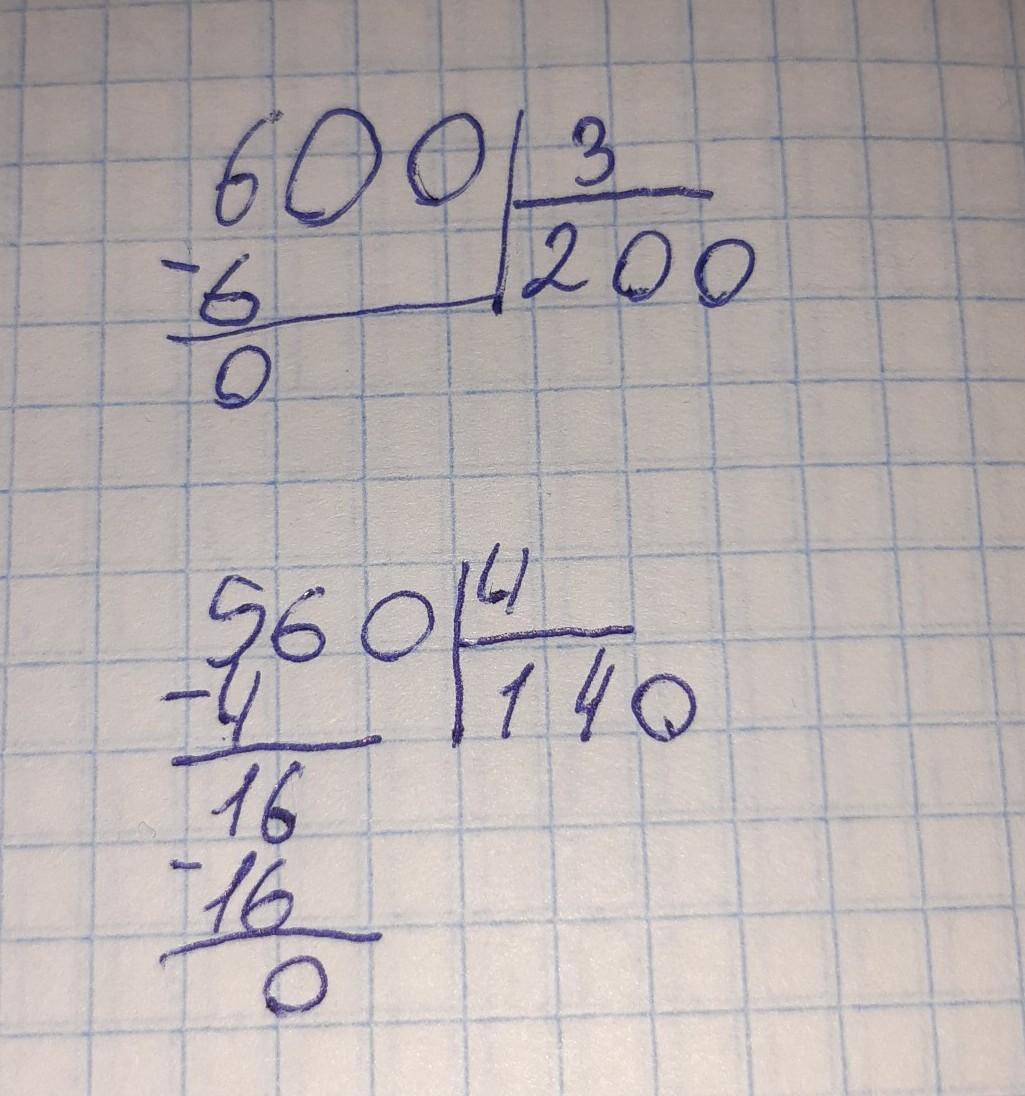 600 3
-6 200
0
560 4
-4 140
16
-16
0